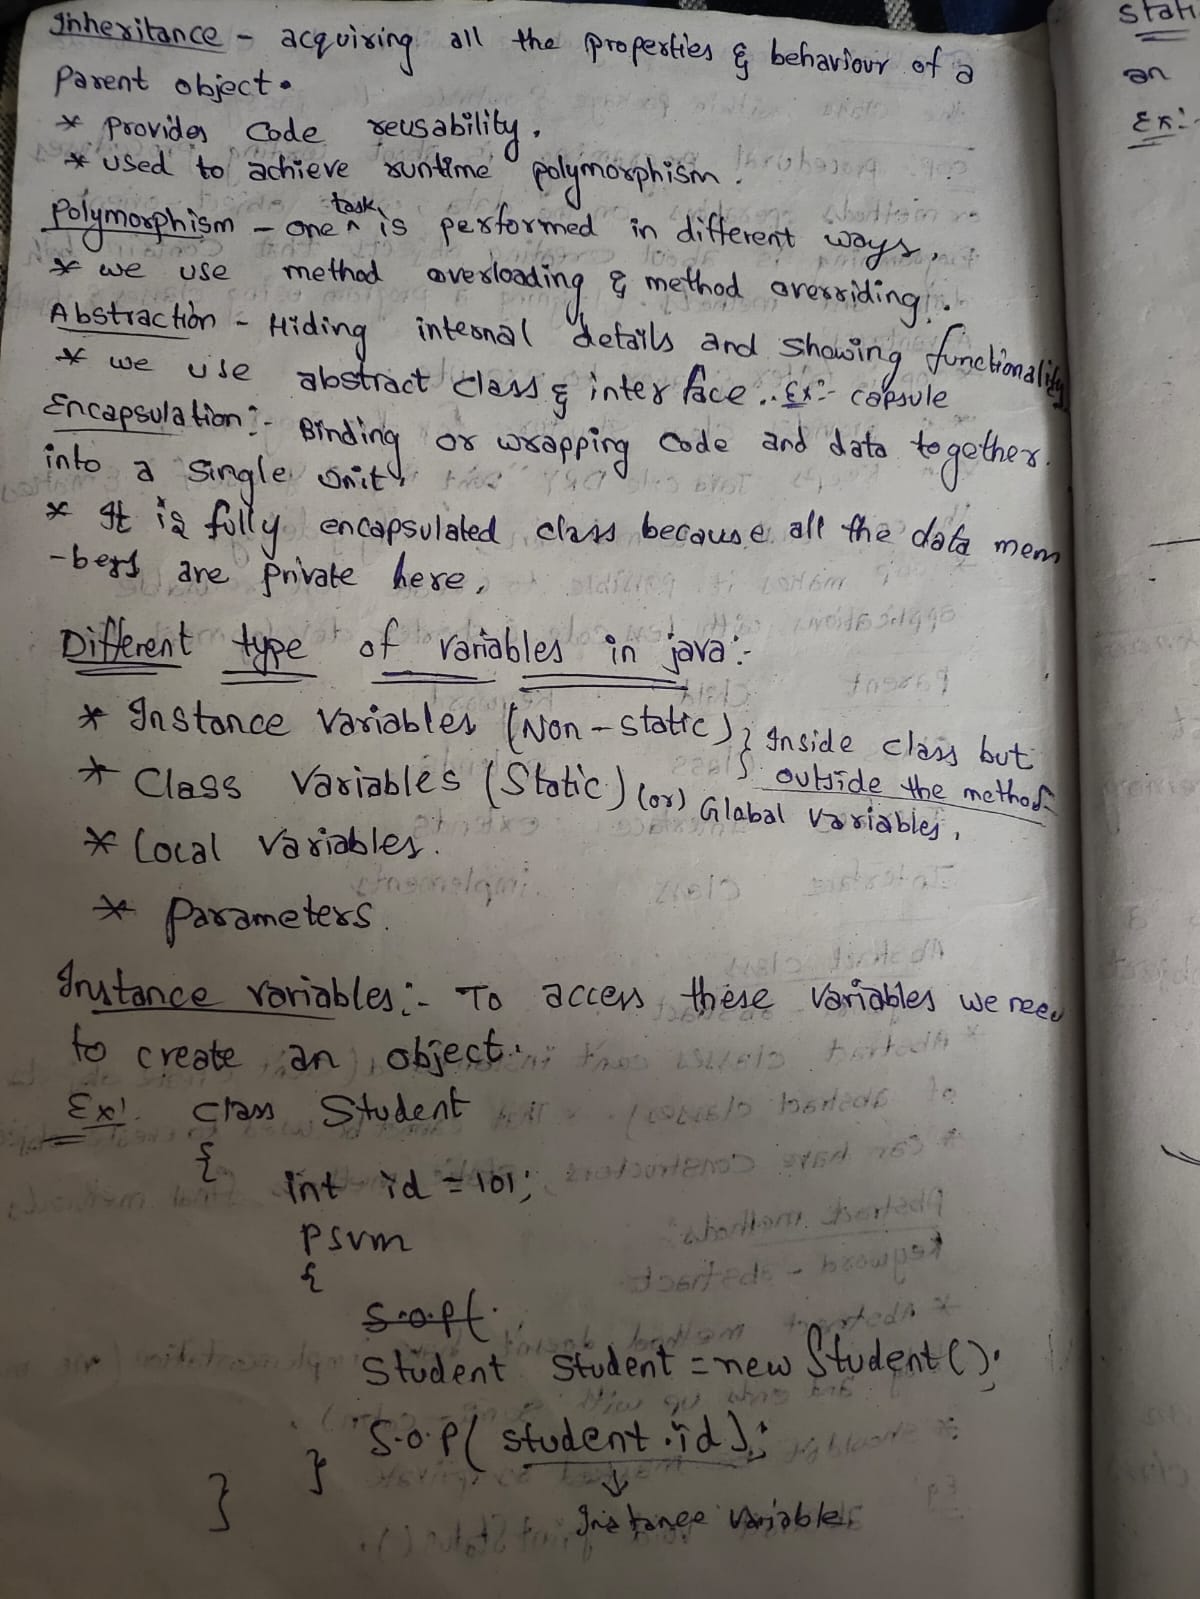 Inheritance - acquiring all the properties & behaviour of a
parent object.
* provides code reusability.
* used to achieve runtime polymorphism.
Polymorphism - one task is performed in different ways.
* we use method overloading & method overriding.
Abstraction - Hiding internal details and showing functionality
* we use abstract class & interface.. Ex:- capsule
Encapsulation:- Binding or wrapping code and data together.
into a single unit.
* It is fully encapsulated class because all the data mem
-bers are private here.
Different type of variables in java:-
* Instance variables (Non-static) } Inside class but
* Class Variables (Static) } outside the method
(or) Global variables.
* Local variables.
* parameters.
Instance variables:- To access these variables we need
to create an object.
Ex! class Student
{
int id = 101;
psvm
{
S.o.p(.
Student Student = new Student();
S.o.p( student.id );
}
}
Instance variable
stati
an
Ex:-